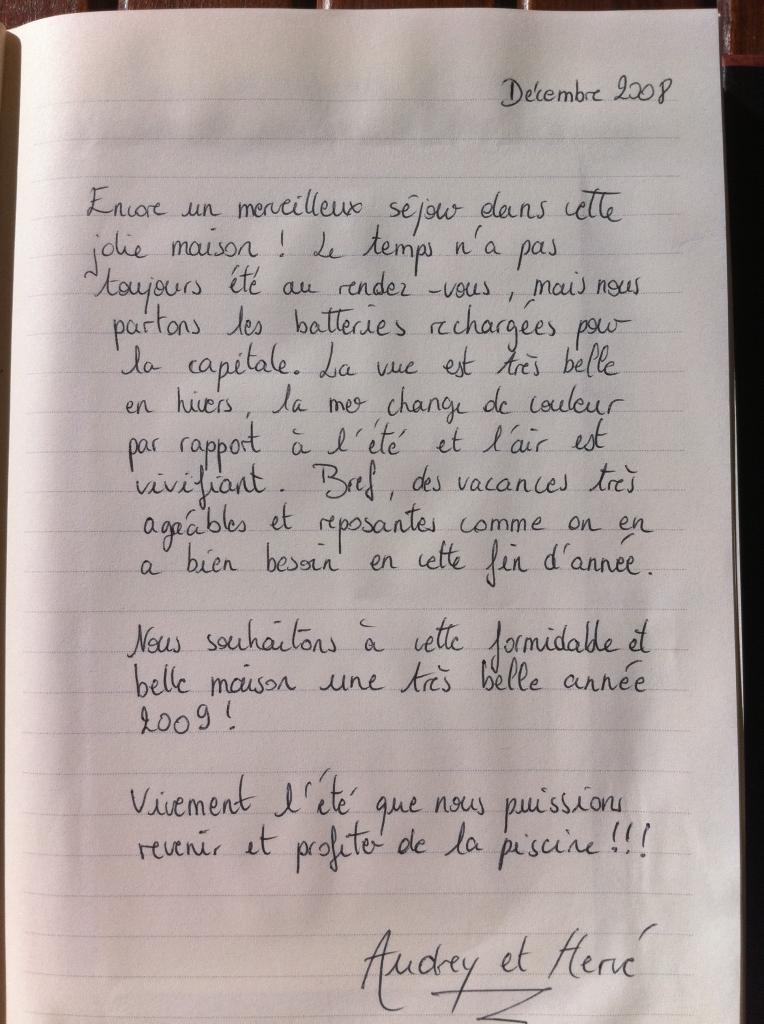 Décembre 2008
Encore un merveilleux séjour dans cette
jolie maison ! Le temps n'a pas
toujours été au rendez-vous, mais nous
partons les batteries rechargées pour
la capitale. La vue est très belle
en hivers, la mer change de couleur
par rapport à l'été et l'air est
vivifiant. Bref, des vacances très
agéables et reposantes comme on en
a bien besoin en cette fin d'année.
Nous souhaitons à cette formidable et
belle maison une très belle année
2009 !
Vivement l'été que nous puissions
revenir et profiter de la piscine !!!
Audrey et Hervé